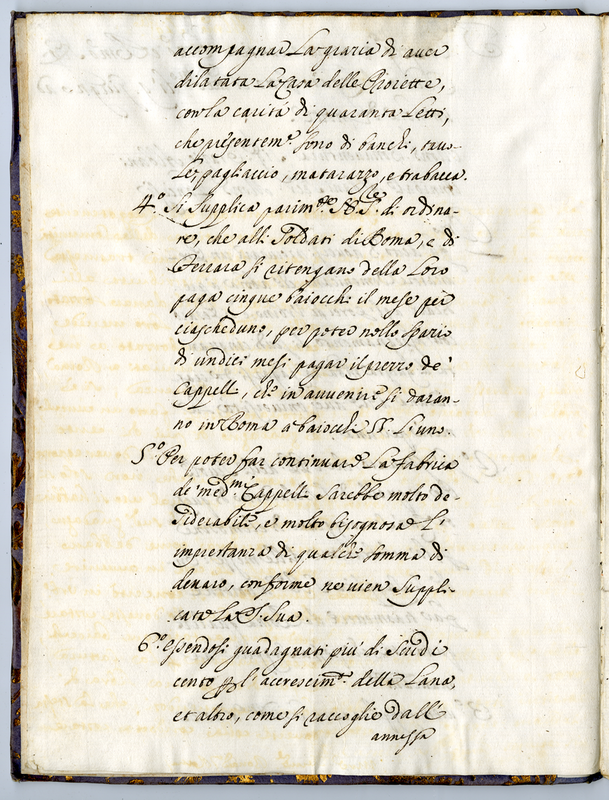 accompagnar La gratia di aver
dilatata La Casa delle Zoiette,
con la carità di quaranta Letti,
che presentem.e sono di banchi, tavo-
le, pagliaccio, matarazzo, e trabacca.
4.o Si Supplica parim.te N.S.re di ordina-
re, che alli Soldati di Roma, e di
Ferrara si ritengano della Loro
paga cinque baiocchi il mese per
ciascheduno, per poter nello spatio
di undici mesi pagar il prezzo de'
Cappelli, che in avvenire si daran-
no in Roma a baiocchi 55. L'uno.
5.o Per poter far continuare La fabrica
de' med.mi Cappelli sarebbe molto de-
siderabile, e molto bisognosa L'
imprestanza di qualche somma di
denaro, conforme ne vien Suppli-
cata La S. Sua.
6.o Essendosi guadagnati più di Scudi
cento p l'accrescim.to della Lana,
et altro, come si raccoglie dall
annessa